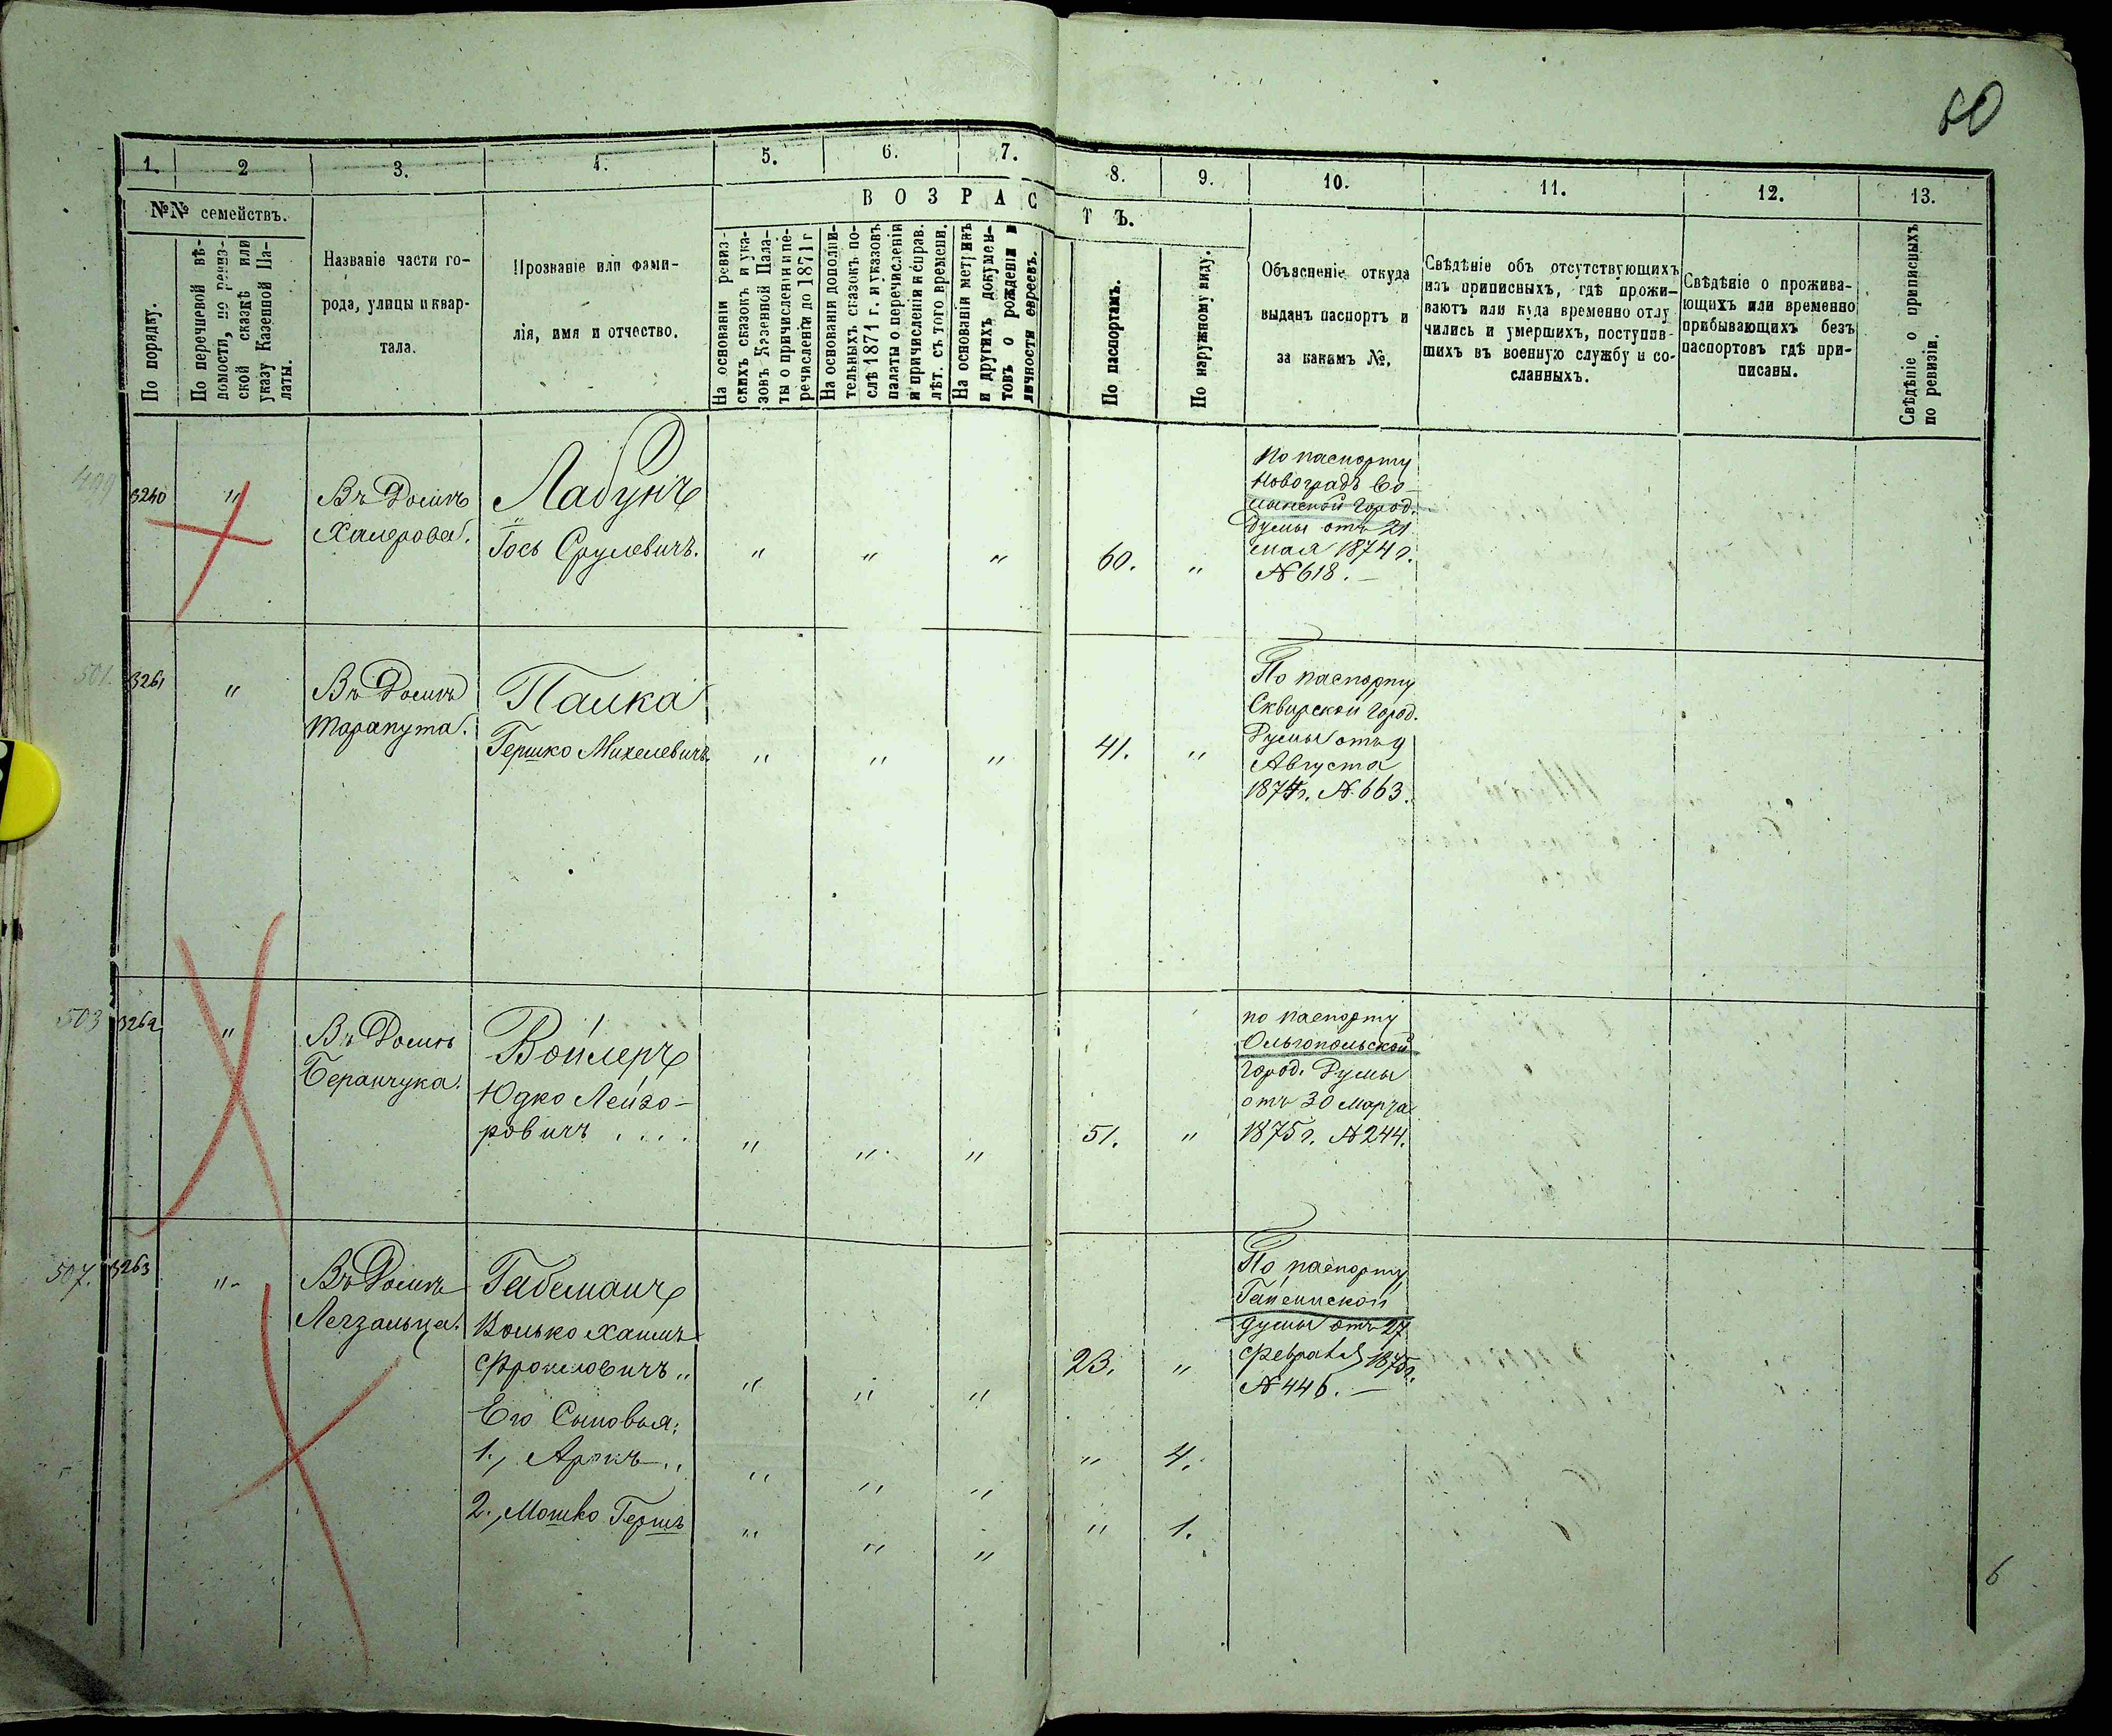 60
1.
2
3.
4.
5.
6.
7.
8.
9.
10.
11.
12.
13.
№№ семействъ.
ВОЗРАСТЪ.
По порядку.
По перечневой вѣ-
домости, по ревиз-
ской сказкѣ или
указу Казенной Па-
латы.
Названіе части го-
рода, улицы и квар-
тала.
Прозваніе или фами-
лія, имя и отчество.
На основаніи ревиз-
скихъ сказокъ и ука-
зовъ Казенной Пала-
ты о причисленіи и пе-
речисленіи до 1871 г
На основаніи дополни-
тельныхъ сказокъ по-
слѣ 1871 г. и указовъ
палаты о перечисленіи
и причисленіи и справ.
лѣт. съ того времени.
На основаніи метрикъ
и другихъ докумен-
товъ о рожденіи и
личности евреевъ.
По паспортамъ.
По наружному виду.
Объясненіе откуда
выданъ паспортъ и
за какимъ №.
Свѣдѣніе объ отсутствующихъ
изъ приписныхъ, гдѣ прожи-
ваютъ или куда временно отлу
чились и умершихъ, поступив-
шихъ въ военную службу и со-
сланныхъ.
Свѣдѣніе о прожива-
ющихъ или временно
прибывающихъ безъ
паспортовъ гдѣ при-
писаны.
Свѣдѣніе о приписныхъ
по ревизіи.
499
3260
"
Въ Домѣ
Халерова.
Лабунъ
Іось Срулевичъ.
"
"
"
60.
"
По паспорту
Новоградъ Во-
лынской Город.
Думы отъ 21
мая 1874 г.
№ 618. —
501.
3261
"
Въ Домѣ
Тарапута.
Палка
Гершко Михелевичъ.
"
"
"
41.
"
По паспорту
Сквирской Город.
Думы отъ 9
Августа
1874г. № 663.
503
3262
"
Въ Домѣ
Беранчука.
Войлеръ
Юдко Лейзо-
ровичъ . . . .
"
"
"
51.
"
по паспорту
Ольгопольской
Город. Думы
отъ 30 Марта
1875 г. № 244.
507.
3263
"
Въ Домѣ
Волько Хаимъ
Фроимовичъ "
"
"
"
23.
"
По паспорту
Гайсинской
думы отъ 27
февраля 1875г.
№ 446. —
Его Сыновья:
1., Аронъ
"
"
"
"
4.
2., Мошко Гершъ
"
"
"
"
1.
6